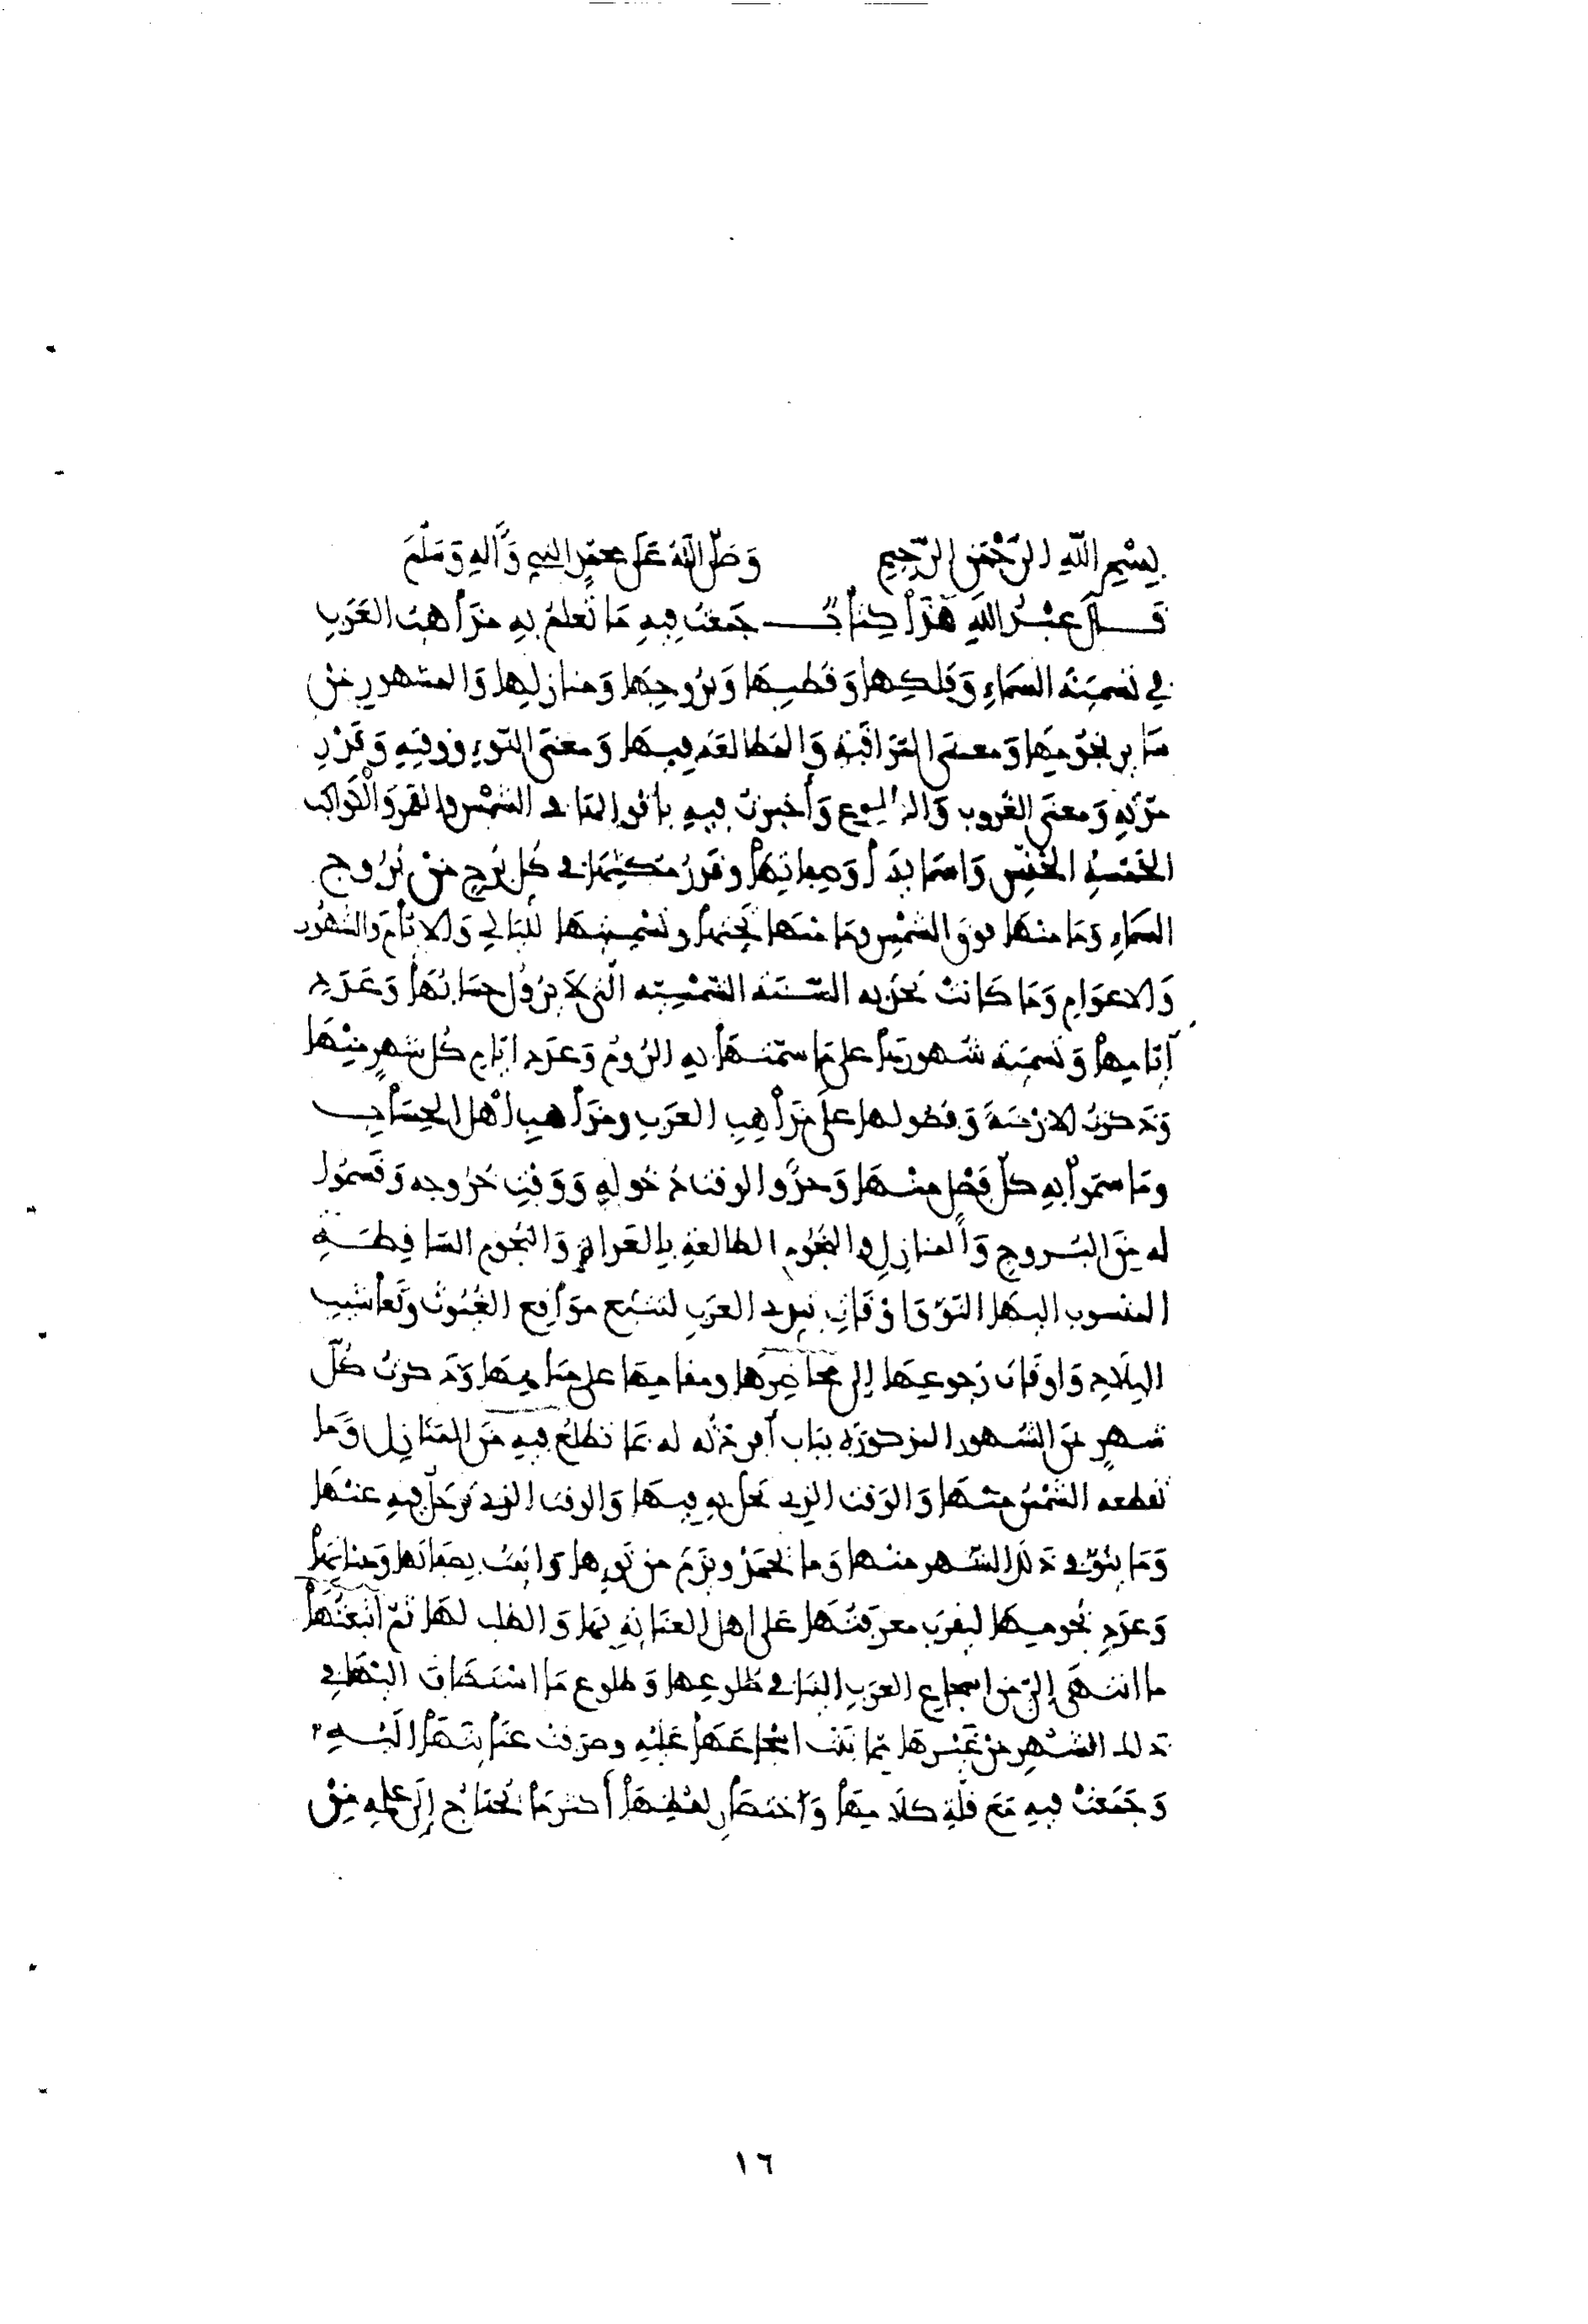 بِسْمِ اللَّهِ الرَّحْمَنِ الرَّحِيمِ وَصَلَّى اللَّهُ عَلَى محمد النبي وَآلِهِ وَسَلَّمَ
قَالَ عَبْدُ اللَّهِ هَذَا كِتَابٌ جَمَعْتُ فِيهِ مَا تُعْلَمُ بِهِ مَذَاهِبُ العَرَبِ
في تَسْمِيَةِ السَّمَاءِ وَفَلَكِهَا وَقُطْبِهَا وَبُرُوجِهَا وَمَنَازِلِهَا وَالمشهورِ مِنْ
سَائِرِ نُجُومِهَا وَمعنى المُرَاقَبَةِ وَالمُطَالَعَةِ فِيهَا وَمعنى النَّوءِ وَوَقْتِهِ وَقَدْرِ
مُدَّتِهِ وَمعنَى الغُروبِ وَالطلوع وَأَخبرتُ فِيهِ بِأقوالها في الشَّمْسِ والقمرِ وَالْكَواكِبِ
الخَمْسَةِ الخُنَّسِ وَأسمائِهَا وَصِفاتِهَا وقَدْرِ مُكْثِهَا في كُلِّ بُرْجٍ مِنْ بُرُوجِ
السَّمَاءِ وَمَا مِنْهَا فوقَ الشَّمْسِ وَمَا مِنْهَا تَحْتَهَا وتَسْمِيَتِهَا للّيالِي وَالأيَّامِ وَالشُّهُورِ
وَالأعْوَامِ وَمَا كَانَتْ تَحُدُّ به السَّنَةَ الشَّمْسِيّة الَّتي لَا يَزُولُ حِسَابُهَا وَعَدَدِ
أيَّامِهَا وَتَسمِيَةِ شُهورِهَا على مَا سمّتْهَا بِهِ الرُّومُ وَعَدَدِ أيّامِ كُلِّ شَهرٍ مِنْهَا
وَذَكَرتُ الأزْمِنَةَ وَفُصُولَها عَلَى مَذَاهِبِ العَرَبِ ومَذَاهِبِ أهْلِ الحِسَابِ
ومَا سَمّوا بِهِ كُلَّ فَصْلٍ مِنْهَا وَحَدُّوا لوقت دُخُولِهِ وَوَقْتِ خُرُوجِه وَقَسمُوا
له مِنَ البُروجِ وَالمنازِلِ والنُّجُومِ الطالعةِ بِالغَداةِ وَالنُّجُومِ السَّاقِطَةِ
المنسوبِ إليهَا النَّوْءُ وَأوْقَاتِ تَبَدِّي العَرَبِ لتَتَبُّعِ مَوَاقِعِ الغُيُوثِ وتَعَاشِيبِ
البِلَادِ وَأوقَاتِ رُجوعِهَا إلى مَحَاضِرِهَا ومقامِها على مِيَاهِهَا وَذَكَرتُ كُلَّ
شهرٍ مِنَ الشُّهورِ المذكورَةِ بِبَابٍ أفردْتُه له بِمَا تطْلُعُ فِيهِ مِنَ المَنَازِلِ وَمَا
تَقْطعه الشَّمْسُ مِنْهَا وَالوَقْتِ الذي تحلُّ بِهِ فِيهَا وَالوقتِ الذي تَرْحَلُ فِيهِ عَنْهَا
وَمَا يَنُوءُ في ذَلِكَ الشَّهرِ مِنهَا وَمَا يُحْمَدُ ويُذَمُّ مِن نَوْئِها وَأتيتُ بِصِفَاتِها وَهيئاتها
وَعَدَدِ نُجُومِهَا لِيَقرُبَ معرفَتُهَا عَلى أهلِ العنَايَةِ بِهَا وَالطلبِ لهَا ثُمَّ أتْبَعْتُهَا
ما انتهَى إلَيَّ مِن أسجاعِ العَرَبِ إلينَا في طُلوعِها وَطلوعِ مَا اسْتَضَافَ إليْهَا في
ذلك الشَّهْرِ مِنْ غَيْرِهَا مِمَّا بَنَت أسْجَاعَهَا عَلَيْهِ وصَرَفت عِنَايَتَهَا إلَيْهِ
وَجَمَعْتُ فِيهِ مَعَ قِلّةِ كلَامِهَا وَاختصَارِ لَفْظِهَا أكثرَ مَا يُحتَاجُ إلَى عِلمِهِ مِنْ
١٦